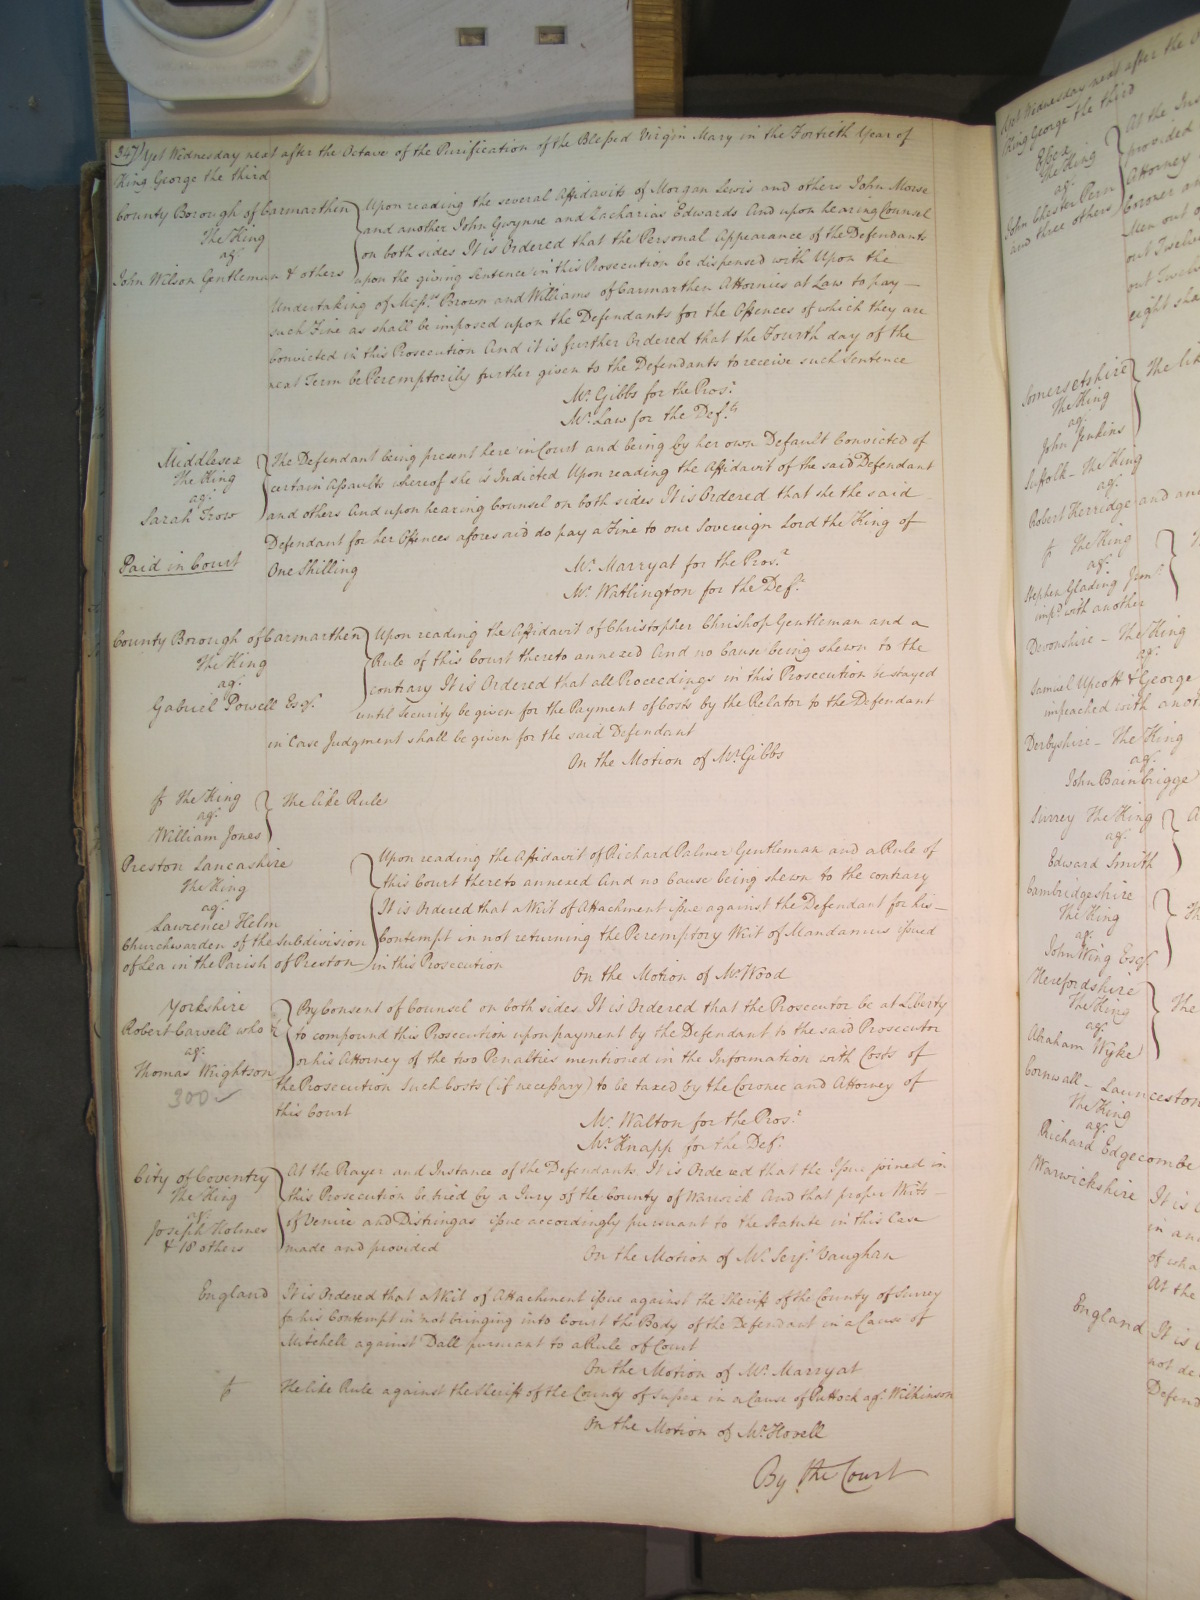 347) Yet Wednesday next after the Octave of the Purification of the Blessed Virgin Mary in the Fortieth Year of
King George the third
County Borough of Carmarthen
The King
agt.
John Wilson Gentleman & others
Upon reading the several Affidavits of Morgan Lewis and others John Morse
and another John Gwynne and Zacharias Edwards And upon hearing Counsel
on both sides It is Ordered that the Personal Appearance of the Defendants
upon the giving Sentence in this Prosecution be dispensed with Upon the
Undertaking of Messrs. Brown and Williams of Carmarthen Attornies at Law to pay —
such Fine as shall be imposed upon the Defendants for the Offences of which they are
Convicted in this Prosecution And it is further Ordered that the Fourth day of the
next Term be Peremptorily further given to the Defendants to receive such Sentence
Mr. Gibbs for the Prosr.
Mr. Law for the Defts.
Middlesex
The King
agt.
Sarah Trow
Paid in Court
The Defendant being present here in Court and being by her own Default Convicted of
certain Assaults whereof she is Indicted Upon reading the Affidavit of the said Defendant
and others And upon hearing Counsel on both sides It is Ordered that she the said
Defendant for her Offences aforesaid do pay a Fine to our Sovereign Lord the King of
One Shilling
Mr. Marryat for the Prosr.
Mr. Watlington for the Deft.
County Borough of Carmarthen
The King
agt.
Gabriel Powell Esqr.
Upon reading the Affidavit of Christopher Chrishop Gentleman and a
Rule of this Court thereto annexed And no Cause being shewn to the
contrary It is Ordered that all Proceedings in this Prosecution be stayed
until Security be given for the Payment of Costs by the Relator to the Defendant
in Case Judgment shall be given for the said Defendant
On the Motion of Mr. Gibbs
The King
agt.
William Jones
The like Rule
Preston Lancashire
The King
agt.
Lawrence Helm
Churchwarden of the subdivision
of Lea in the Parish of Preston
Upon reading the Affidavit of Richard Palmer Gentleman and a Rule of
this Court thereto annexed And no Cause being shewn to the contrary
It is Ordered that a Writ of Attachment issue against the Defendant for his —
Contempt in not returning the Peremptory Writ of Mandamus issued
in this Prosecution
On the Motion of Mr. Wood
Yorkshire
Robert Carwell who &c
agt.
Thomas Wrightson
300
By Consent of Counsel on both sides It is Ordered that the Prosecutor be at Liberty
to compound this Prosecution upon payment by the Defendant to the said Prosecutor
or his Attorney of the two Penalties mentioned in the Information with Costs of
the Prosecution Such Costs (if necessary) to be taxed by the Coroner and Attorney of
this Court
Mr. Walton for the Prosr.
Mr. Knapp for the Deft.
City of Coventry
The King
agt.
Joseph Holmes
& 18 others
At the Prayer and Instance of the Defendants It is Ordered that the Issue joined in
this Prosecution be tried by a Jury of the County of Warwick And that proper Writs —
of Venire and Distringas issue accordingly pursuant to the Statute in this Case
made and provided
On the Motion of Mr. Serjt. Vaughan
England
It is Ordered that a Writ of Attachment issue against the Sheriff of the County of Surrey
for his Contempt in not bringing into Court the Body of the Defendant in a Cause of
Mitchell against Dall pursuant to a Rule of Court
On the Motion of Mr. Marryat
The like Rule against the Sheriff of the County of Sussex in a Cause of Puttock agt. Wilkinson
On the Motion of Mr. Hovell
By the Court
Yet Wednesday next after the
King George the third
Essex
The King
agt.
John Chester Pern
and three others
At the Ins
provided
Attorney
Coroner an
Men out o
out Twelve
out Twelve
eight sha
Somersetshire
The King
agt.
John Jenkins
The lik
Suffolk – The King
agt.
Robert Kerridge and ano
The King
agt.
Stephen Glading
impd. with another
Devonshire – The King
agt.
Samuel Upcott & George
impeached with anoth
Derbyshire – The King
agt.
John Bainbrigge
Surrey The King
agt.
Edward Smith
Cambridgeshire
The King
agt.
John Wing Esqr.
Herefordshire
The King
agt.
Abraham Wyke
The
Cornwall – Launceston
The King
agt.
Richard Edgecombe
Warwickshire
It is
in a
of wha
At the
England
It is
not de
Defend